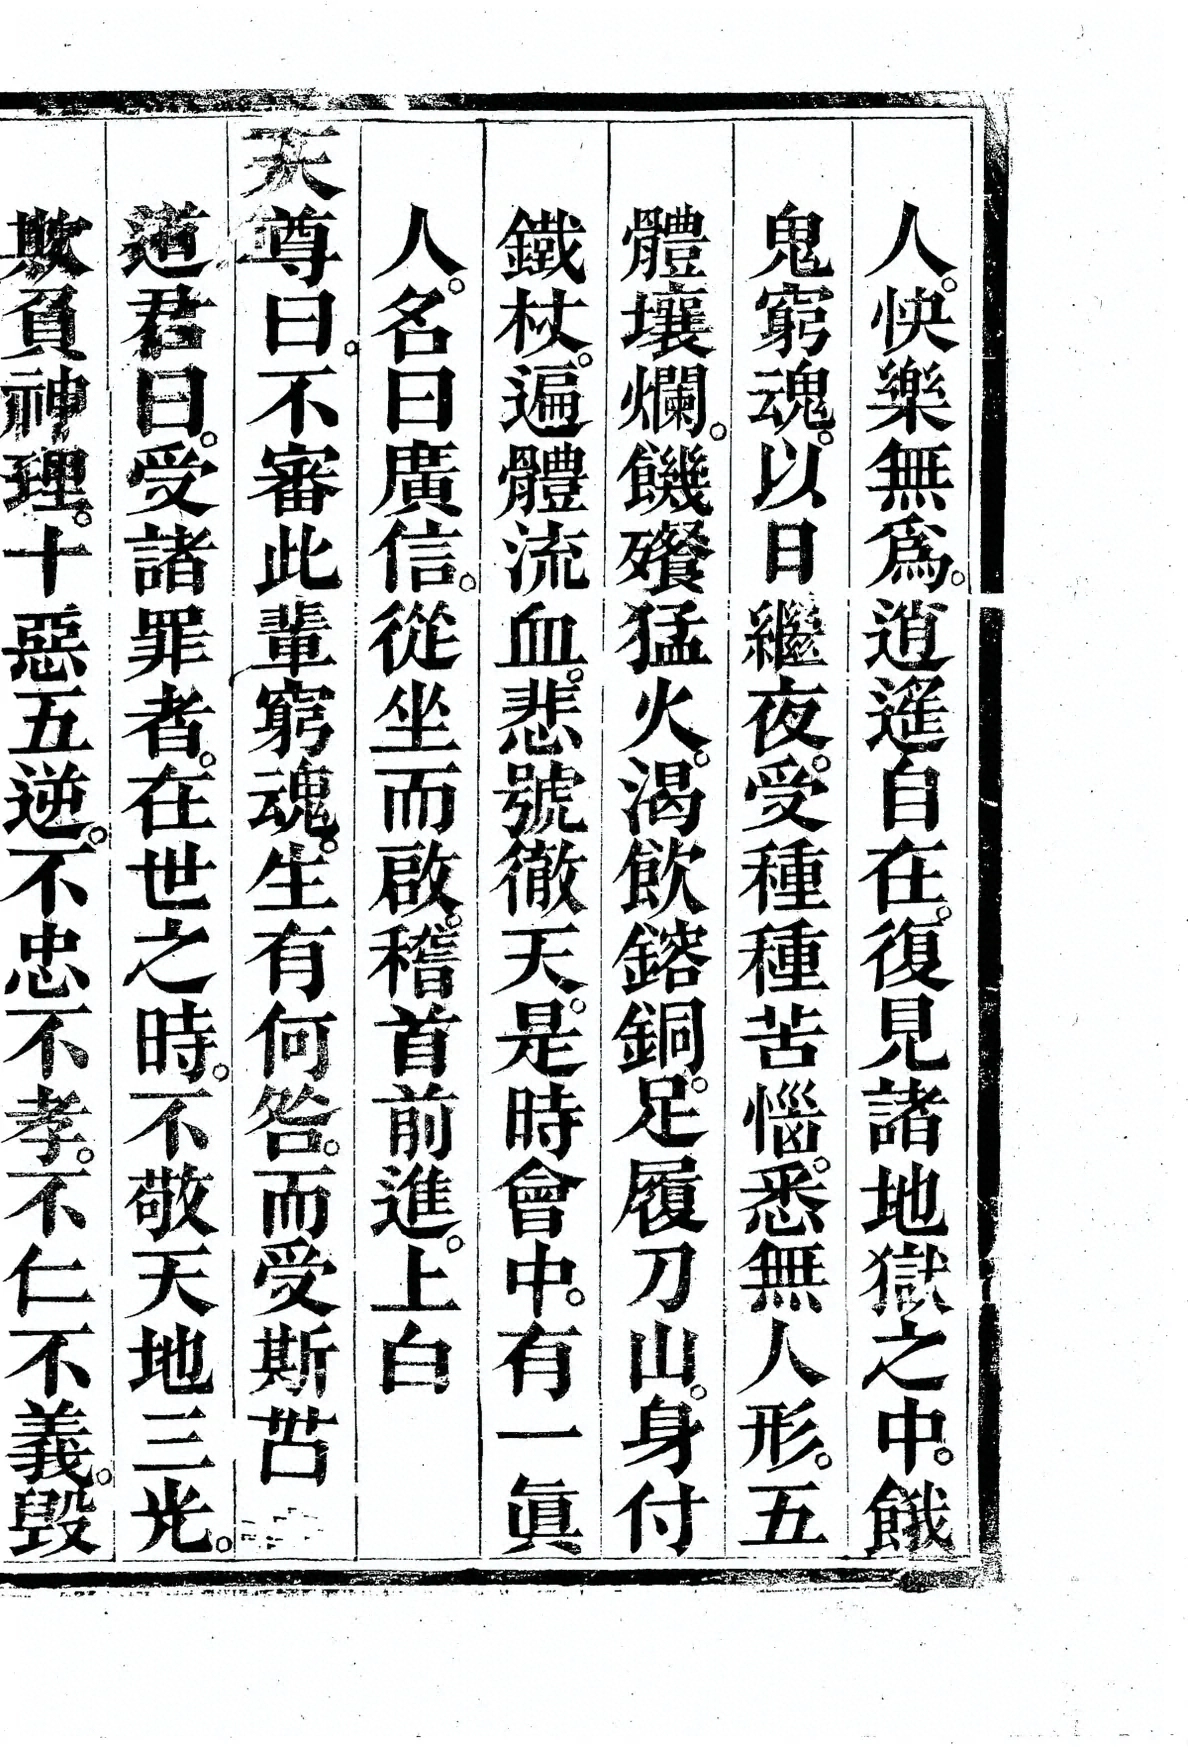 人。快樂無爲。逍遙自在。復見諸地獄之中。餓
鬼窮魂。以日繼夜。受種種苦惱。悉無人形。五
體壤爛。饑飱猛火。渴飲鎔銅。足履刀山。身付
鐵杖。遍體流血。悲號徹天。是時會中。有一眞
人。名曰廣信。從坐而啟。稽首前進。上白
天尊曰。不審此輩窮魂。生有何咎。而受斯苦
道君曰。受諸罪者。在世之時。不敬天地三光。
欺負神理。十惡五逆。不忠不孝。不仁不義。毀